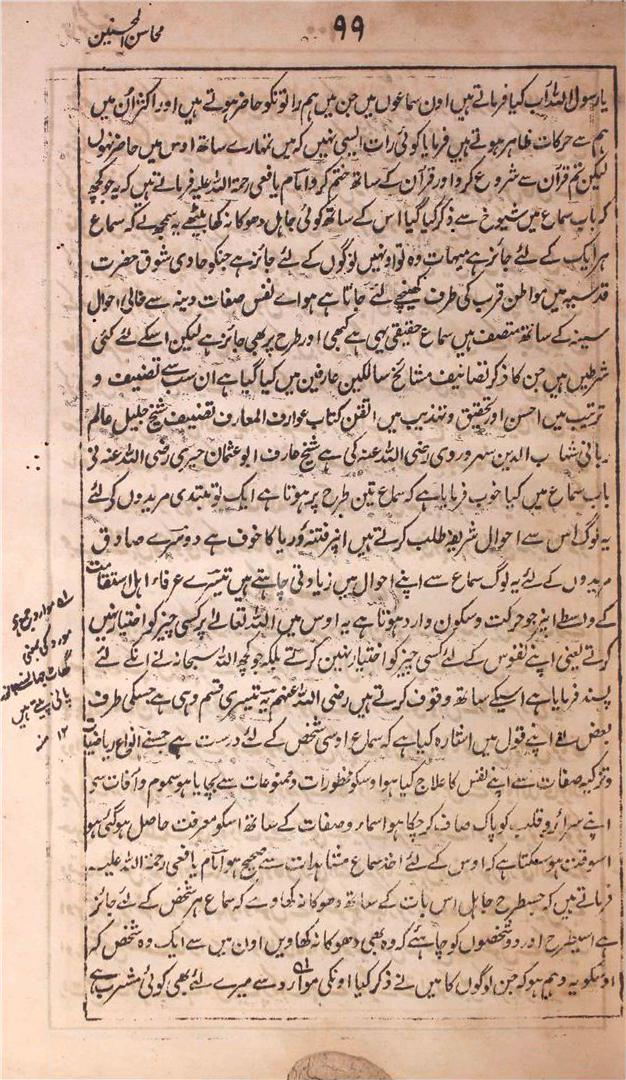 ۹۹
محاسن الحسنین
یا رسول اللہ آپ کیا فرماتے ہیں اون سماعوں میں جن میں ہم راتونکو حاضر ہوتے ہیں اور اکثر اُن میں
ہم سے حرکات ظاہر ہوتے ہیں فرمایا کوئی رات ایسی نہیں کہ میں تمہارے ساتھ اوس میں حاضر نہوں
لیکن تم قرآن سے شروع کرو اور قرآن کے ساتھ ختم کرو امام یافعی رحمۃ اللہ علیہ فرماتے ہیں کہ یہ جو کچھ
کہ باب سماع میں شیوخ سے ذکر گیا گیا اس کے ساتھ کوئی جاہل دھوکا نہ کھا بیٹھے یہ سمجھ کے کہ سماع
ہر ایک کے لئے جائز ہے ہیہات وہ تو اونہیں لوگوں کے لئے جائز ہے جنکو حادی شوق حضرت
قدسیہ میں مواطن قرب کی طرف کھینچے لئے جاتا ہے ہوائے نفس صفات دینہ سے خالی احوال
سینہ کے ساتھ متصف ہیں سماع حقیقی یہی ہے کبھی اور طرح پر بھی جائز ہے لیکن اسکے لئے کئی
شرطیں ہیں جن کا ذکر تصانیف مشائخ سالکین عارفین میں کیا گیا ہے ان سب سے تصنیف و
ترتیب میں احسن اور تحقیق و تہذیب میں اتقن کتاب عوارف المعارف تصنیف شیخ جلیل عالم
ربانی شہاب الدین سہروردی رضی اللہ عنہ کی ہے شیخ عارف ابو عثمان حیری رضی اللہ عنہ نے
باب سماع میں کیا خوب فرمایا ہے کہ سماع تین طرح پر ہوتا ہے ایک تو مبتدی مریدوں کے لئے
یہ لوگ اس سے احوال شریفہ طلب کرتے ہیں انپر فتنہ و ریا کا خوف ہے دوسرے صادق
مریدوں کے لئے یہ لوگ سماع سے اپنے احوال میں زیادتی چاہتے ہیں تیسرے عرفاء اہل استقامت
کے واسطے انپر جو حرکت و سکون وارد ہوتا ہے یہ اوس میں اللہ تعالے پر کسی چیز کو اختیار نہیں
کرتے یعنی اپنے نفوس کے لئے کسی چیز کو اختیار نہیں کرتے بلکہ جو کچھ اللہ سبحانہ نے انکے لئے
پسند فرمایا ہے اسیکے ساتھ وقوف کرتے ہیں رضی اللہ عنہم یہ تیسری قسم وہی ہے جسکی طرف
بعض نے اپنے قول میں اشارہ کیا ہے کہ سماع اوسی شخص کے لئے درست ہے جسنے انواع ریاضیات
و تزکیہ صفات سے اپنے نفس کا علاج کیا ہو اوسکو محظورات و ممنوعات سے بچایا ہو سموم و آفات سے
اپنے سرائر و قلب کو پاک صاف کر چکا ہو اسماء و صفات کے ساتھ اسکو معرفت حاصل ہو گئی ہو
اسوقت ہو سکتا ہے کہ اوس کے لئے اخذ سماع مشاہدات سے صحیح ہو امام یافعی رحمۃ اللہ علیہ
فرماتے ہیں کہ جسطرح جاہل اس بات کے ساتھ دھوکا نہ کھاوے کہ سماع ہر شخص کے لئے جائز
ہے اسیطرح اور دو شخصوں کو چاہئے کہ وہ بھی دھوکا نہ کھاویں اون میں سے ایک وہ شخص کہ
اوسکو یہ وہم ہو کہ جن لوگوں کا میں نے ذکر کیا اونکی موارد سے میرے لئے بھی کوئی مشرب ہے
موارد جمع ہے
مورد کی یعنی
پانی پیتے ہیں
۱۲ منہ